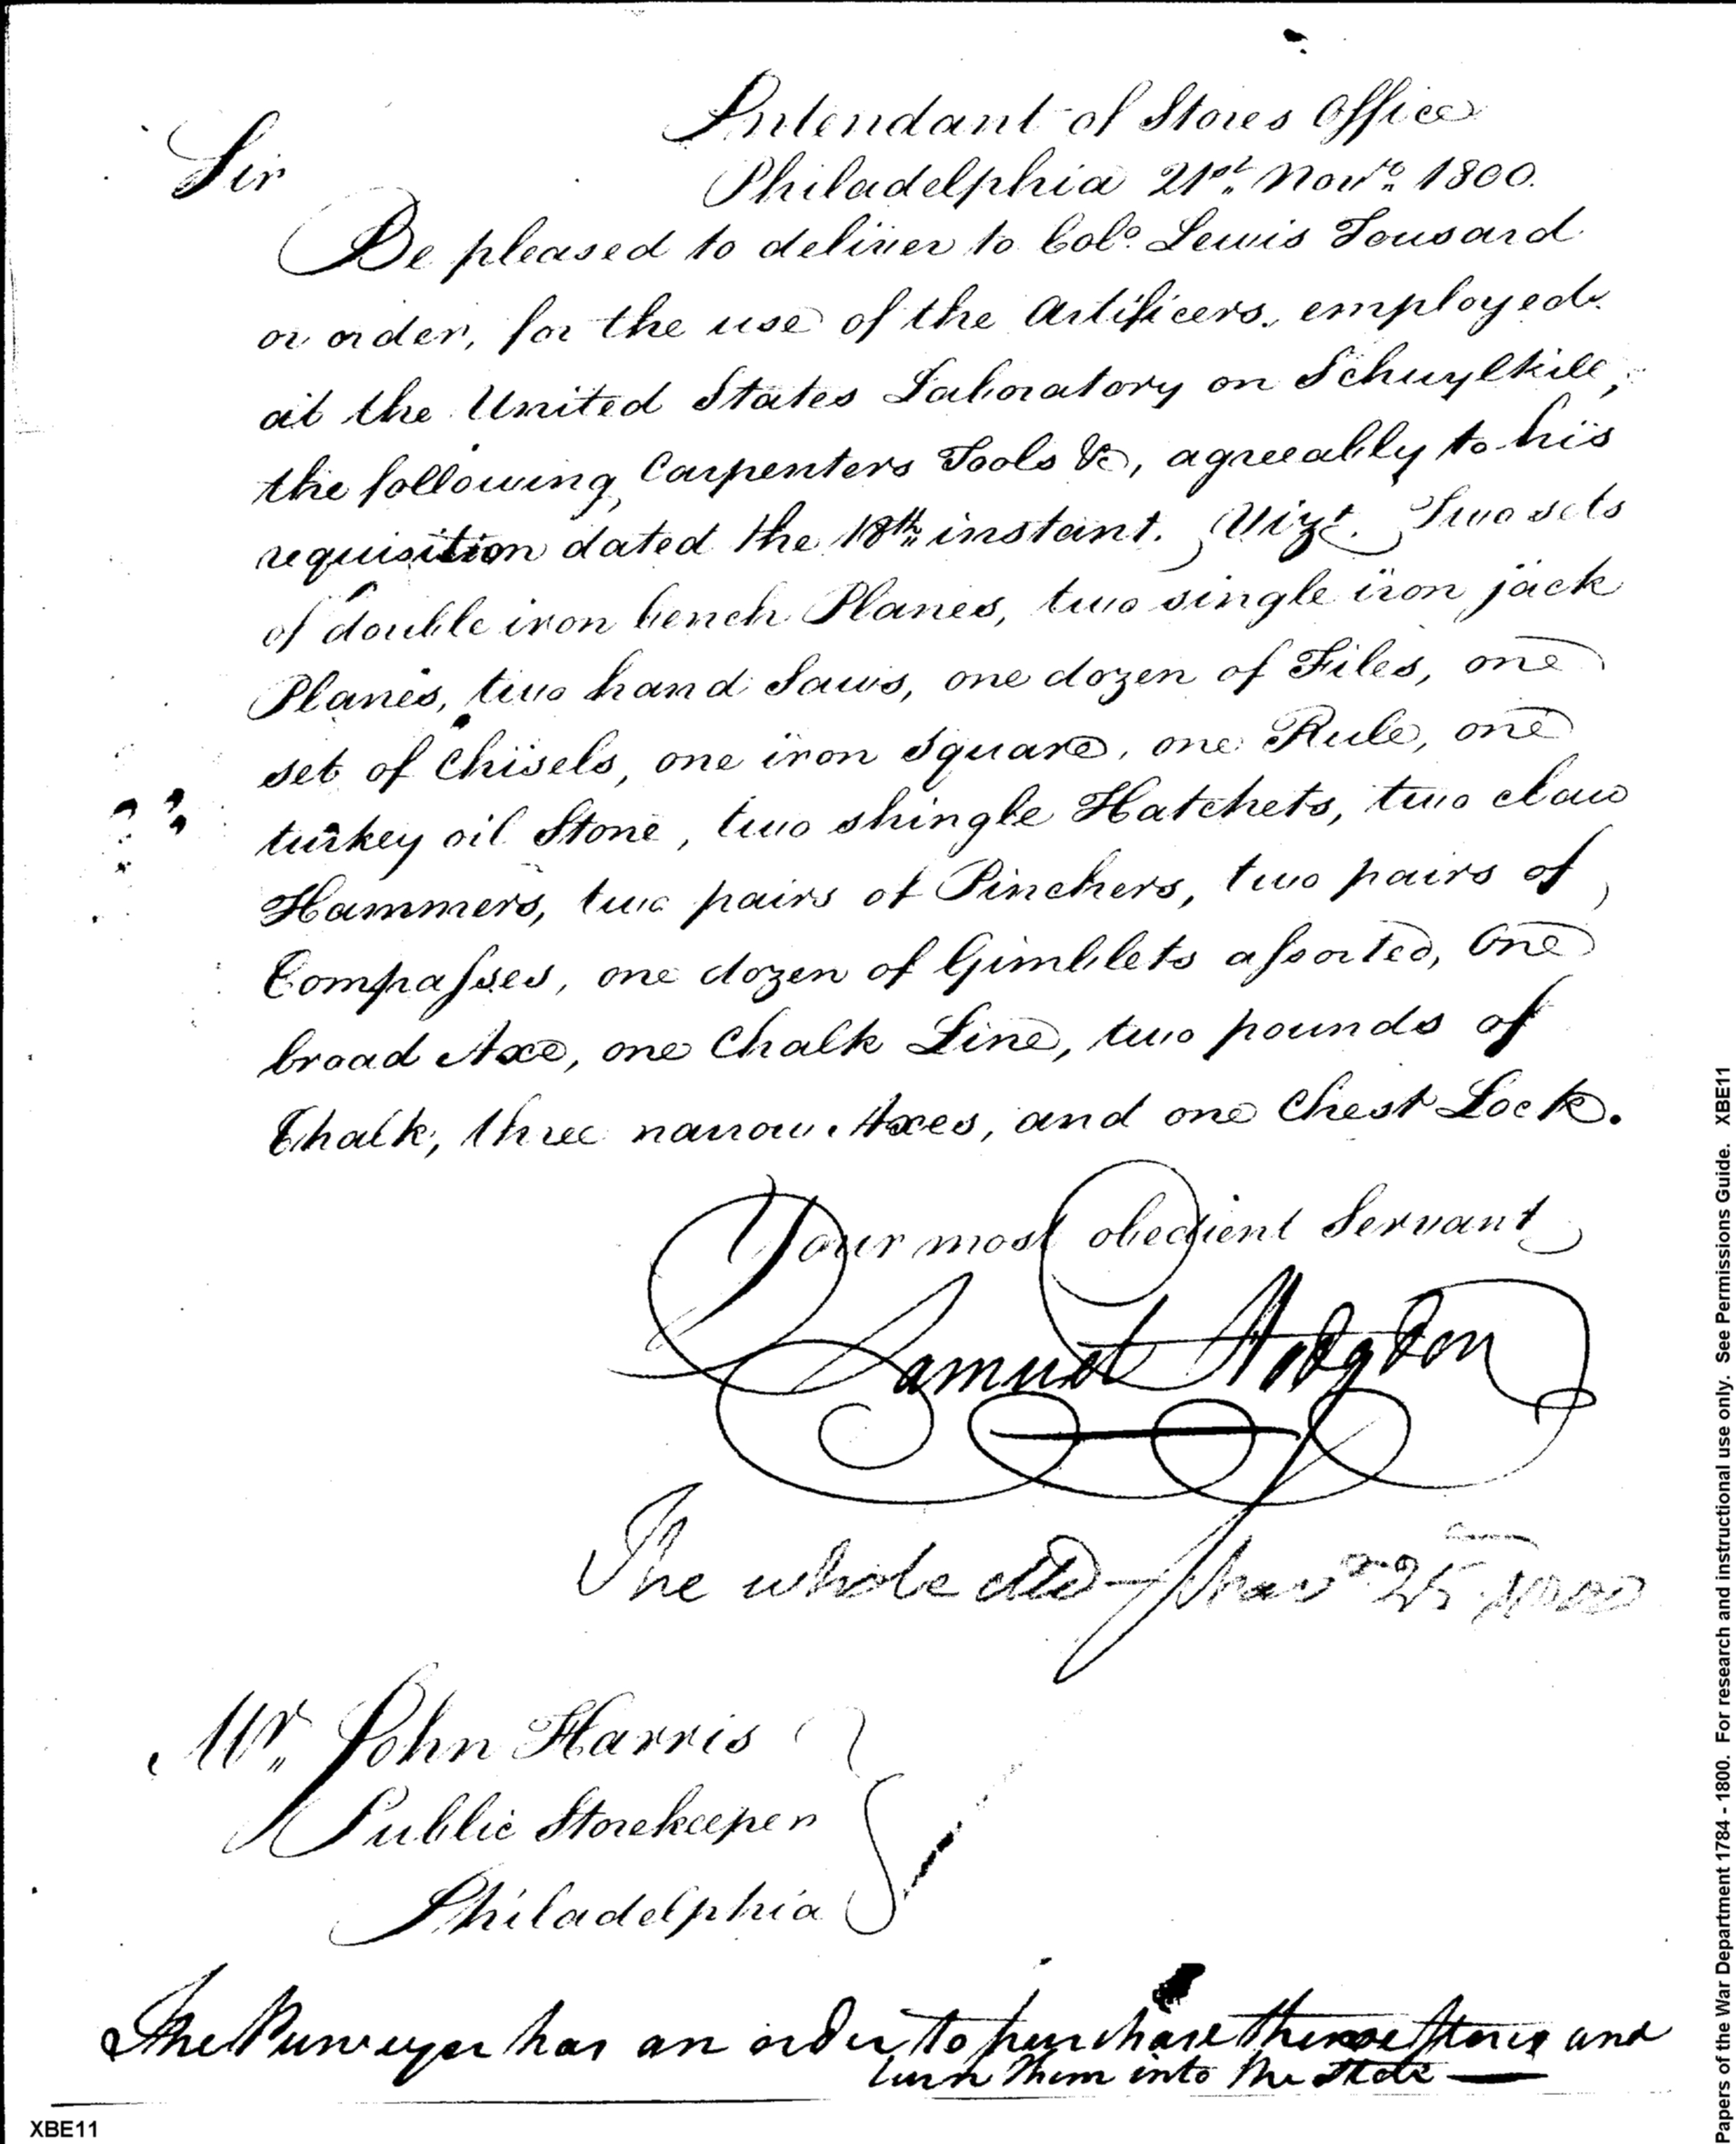 Intendant of Stores Office
Sir
Philadelphia 21st Novr. 1800.
Be pleased to deliver to Colo. Lewis Tousard
or order, for the use of the Artificers, employed
at the United States Laboratory on Schuylkill,
the following Carpenters Tools &c, agreeably to his
requisition dated the 18th instant. Vizt. Two sets
of double iron bench Planes, two single iron jack
Planes, two hand Saws, one dozen of Files, one
set of Chisels, one iron Square, one Rule, one
turkey oil Stone, two shingle Hatchets, two claw
Hammers, two pairs of Pinchers, two pairs of
Compasses, one dozen of Gimblets assorted, One
broad Axe, one Chalk Line, two pounds of
Chalk, three narrow Axes, and one Chest Lock.
Your most obedient Servant
Samuel Hodgdon
The whole dd Novr 25 1800
Mr. John Harris
Public Storekeeper
Philadelphia
The Purveyor has an order to purchase these Stores and
turn them into the Store —
XBE11
Papers of the War Department 1784 - 1800. For research and instructional use only. See Permissions Guide. XBE11